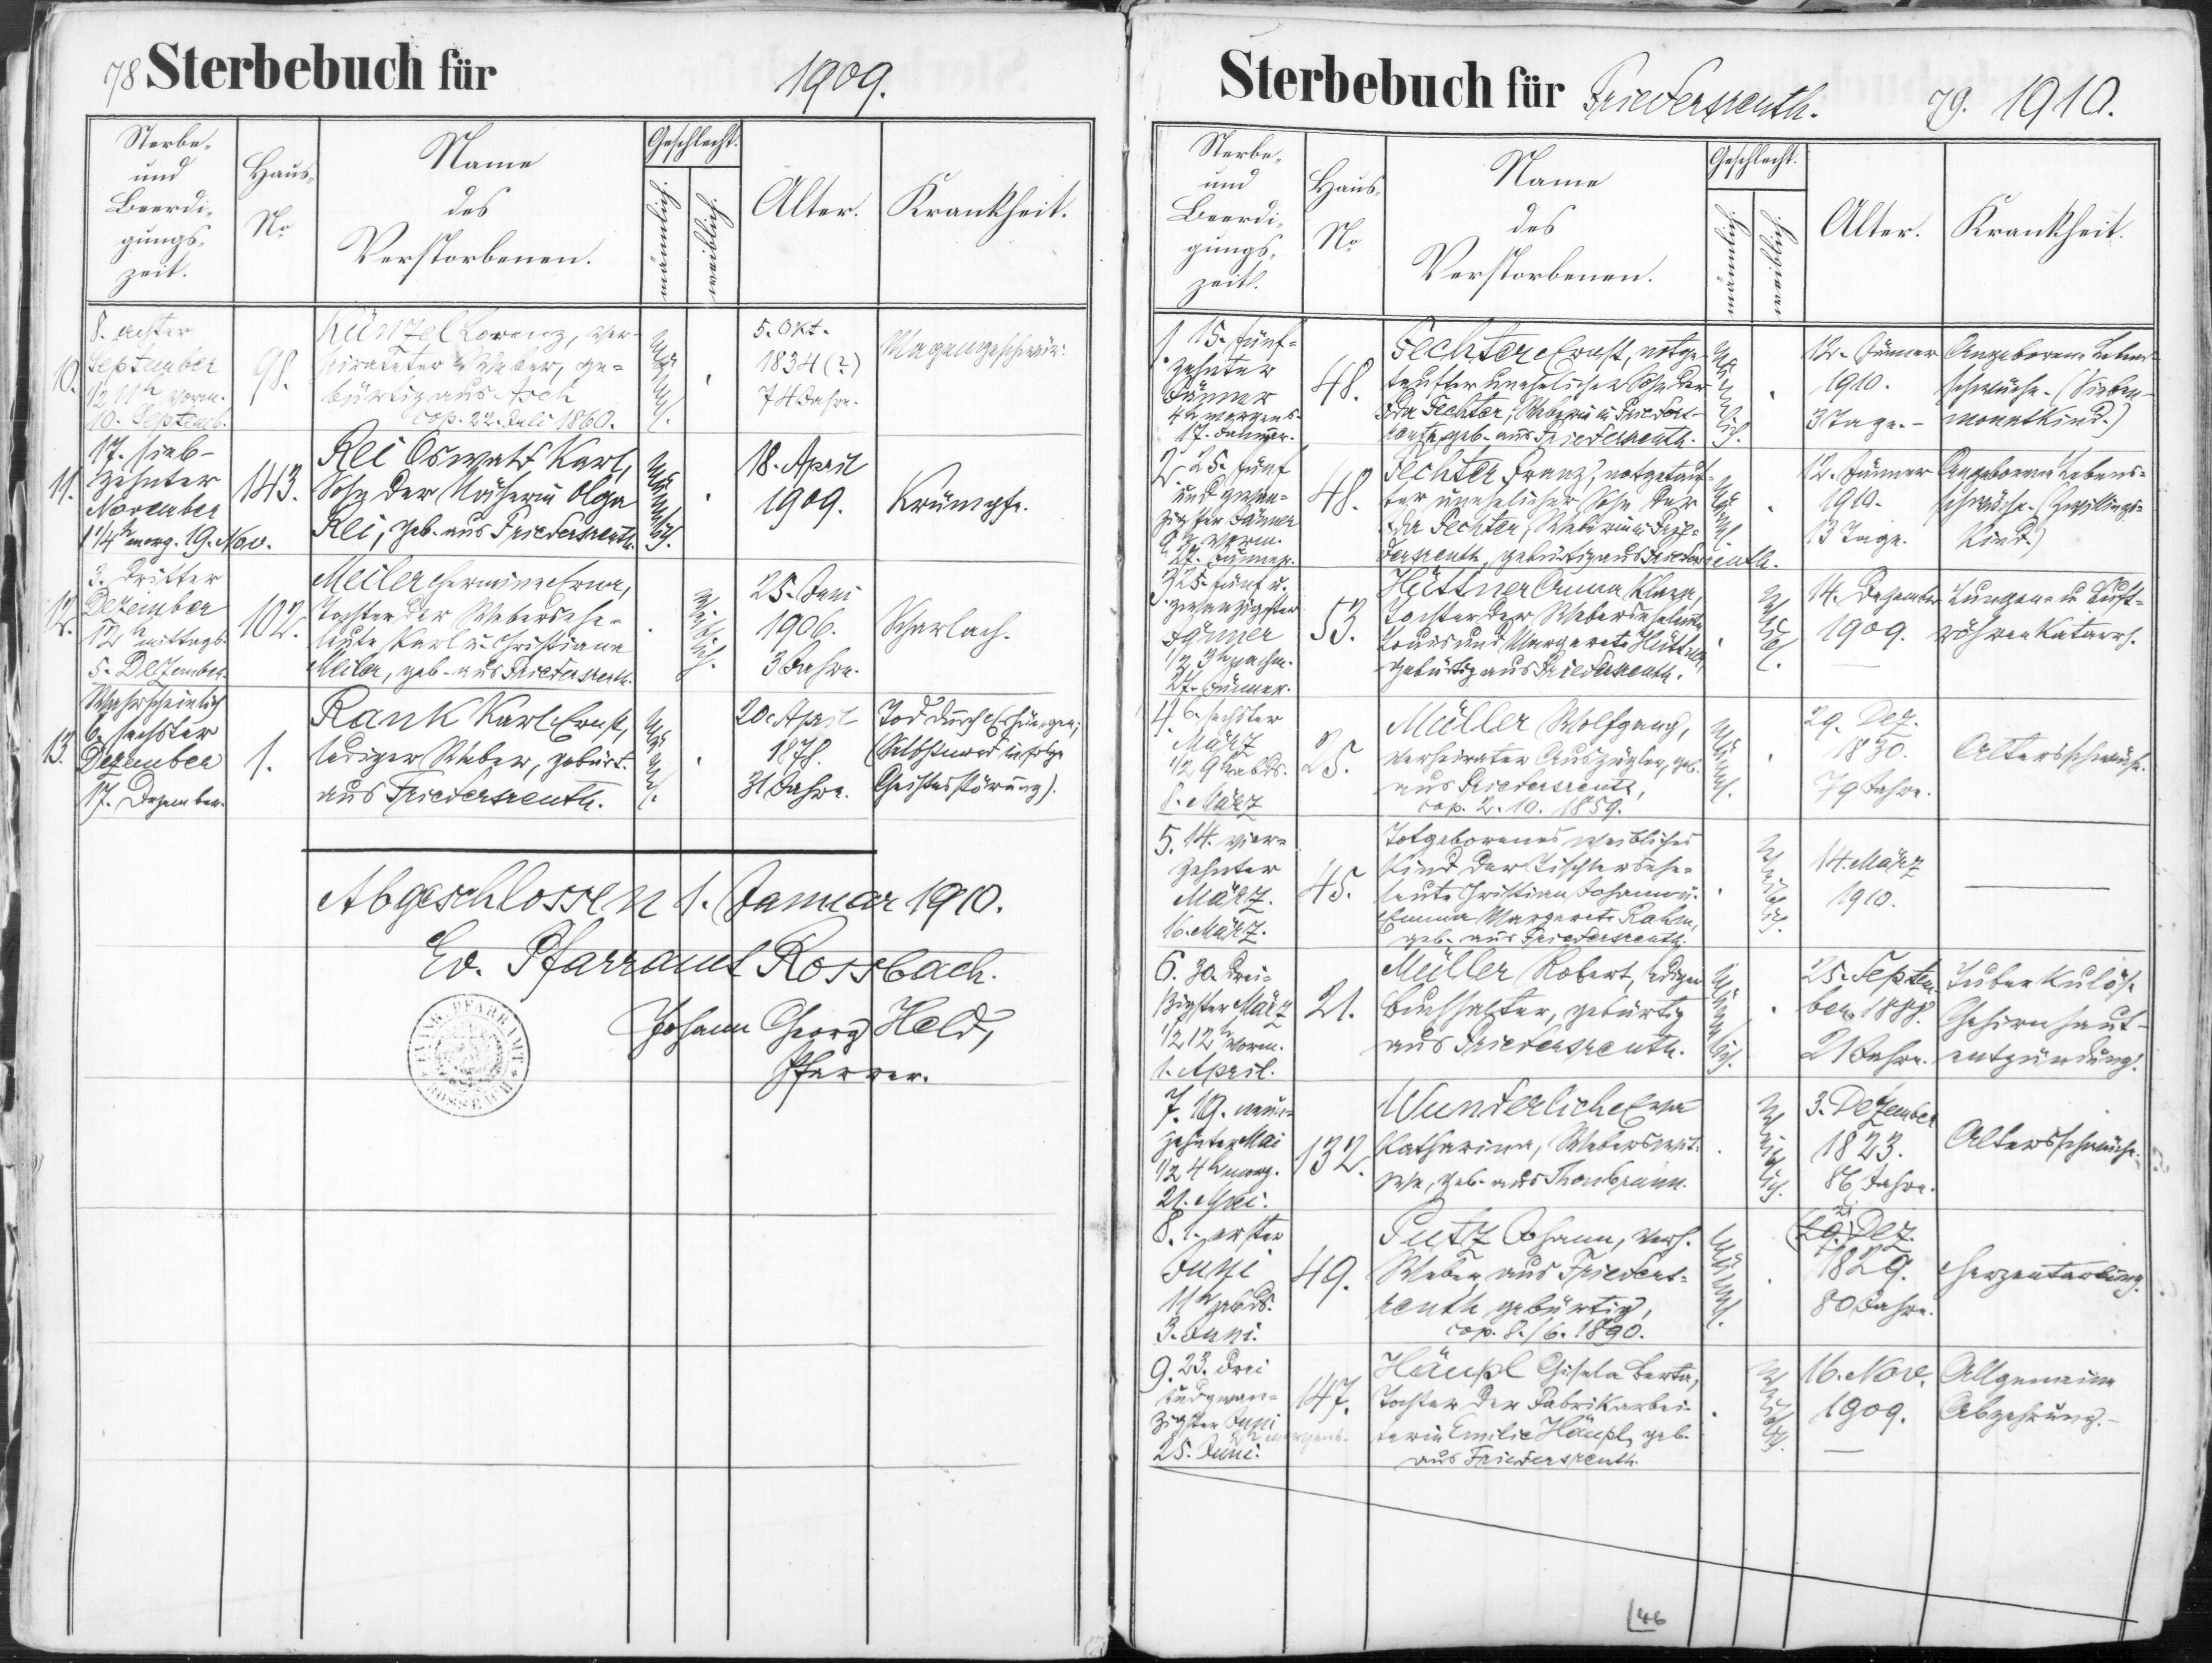 78 Sterbebuch für 1909.
Sterbe-
und
Beerdi-
gungs-
zeit.
Haus-
No
Name
des
Verstorbenen.
Geschlecht.
männlich.
weiblich.
Alter.
Krankheit.
10.
8. achter
September
1/2 11h vorm.
10. Septemb.
98.
Künzel Lorenz, ver-
heirateter Weber, ge-
bürtig aus Asch
cop. 22. Juli 1860.
männl.
5. Okt.
1834 (?)
74 Jahre.
Magengeschwür.
11.
17. sieb-
zehnter
November
1/4 h morg. 19. Nov.
143.
Rei Oswald Karl,
Sohn der Näherin Olga
Rei, geb. aus Friedersreuth.
männlich.
18. April
1909.
Krämpfe.
12.
3. dritter
Dezember
12h mittags.
5. Dezember.
102.
Meiler Hermine Erna,
Tochter der Webersehe-
leute Karl u. Christiana
Meiler, geb. aus Friedersreuth.
weiblich.
25. Juni
1906.
3 Jahre.
Scharlach.
13.
Wahrscheinlich
6. sechster
Dezember
17. Dezember.
1.
Rank Karl Ernst,
lediger Weber, gebürt.
aus Friedersreuth.
männl.
20. April
1878.
31 Jahre.
Tod durch Erhängen;
(Selbstmord infolge
Geistesstörung).
Abgeschlossen 1. Januar 1910.
Ev. Pfarramt Rossbach.
Johann Georg Held,
Pfarrer.
EVANG. PFARRAMT
ROSSBACH
Sterbebuch für Friedersreuth. 79. 1910.
Sterbe-
und
Beerdi-
gungs-
zeit.
Haus-
No
Name
des
Verstorbenen.
Geschlecht.
männlich.
weiblich.
Alter.
Krankheit.
1. 15. fünf-
zehnter
Jänner
4h morgens.
17. Januar.
48.
Fechter Ernst, notge-
taufter unehelicher Sohn der
Ida Fechter, Weberin in Frieders-
reuth, geb. aus Friedersreuth.
männlich.
12. Jänner
1910.
3 Tage.-
Angeborene Lebens-
schwäche. (Sieben-
monatkind.)
2. 25. fünf
und zwan-
zigster Jänner
vorm.
27. Jänner.
48.
Fechter Franz, notgetauf-
ter unehelicher Sohn der
Ida Fechter, Weberin in Frie-
dersreuth, gebürtig aus Friedersreuth.
männl.
12. Jänner
1910.
13 Tage.
Angeborene Lebens-
schwäche. (Zwillings-
kind.)
3. 25. fünf u.
zwanzigster
Jänner
1/2 3h nachm.
27. Jänner.
53.
Hüttner Anna Klara,
Tochter der Weberseheleute
Louis und Margarete Hüttner,
gebürtig aus Friedersreuth.
weibl.
14. Dezember
1909.
Lungen- u. Luft-
röhrenkatarrh.
4. 6. sechster
März
1/2 9h abds.
8. März
25.
Müller Wolfgang,
verheirateter Auszügler, geb.
aus Friedersreuth,
cop. 2. 10. 1859.
männl.
29. Dez.
1830.
79 Jahre.
Altersschwäche.
5. 14. vier-
zehnter
März.
16. März.
45.
Totgeborenes weibliches
Kind der Tischlersehe-
leute Christian Johann u.
Emma Margarete Rahm,
geb. aus Friedersreuth.
weiblich.
14. März
1910.
6. 30. drei-
ßigster März
1/2 12h vorm.
1. April.
21.
Müller Robert, lediger
Buchhalter, gebürtig
aus Friedersreuth.
männlich.
25. Septem-
ber 1888.
21 Jahre.
Tuberkulöse
Gehirnhaut-
entzündung.
7. 19. neun-
zehnter Mai
1/2 4h morg.
21. Mai.
132.
Wunderlich Eva
Katharina, Weberswit-
we, geb. aus Thonbrunn.
weiblich.
3. Dezember
1823.
86 Jahre.
Altersschwäche.
8. 1. erster
Juni
11h abds.
3. Juni.
49.
Putz Johann, verh.
Weber aus Frieders-
reuth gebürtig,
cop. 8./6. 1890.
männl.
29. Dez.
1829.
80 Jahre.
Herzentartung.
9. 23. drei
undzwan-
zigster Juni
2h morgens.
25. Juni.
147.
Häupl Gisela Berta,
Tochter der Fabrikarbei-
terin Emilie Häupl, geb.
aus Friedersreuth.
weiblich.
16. Nov.
1909.
Allgemeine
Abzehrung.-
46